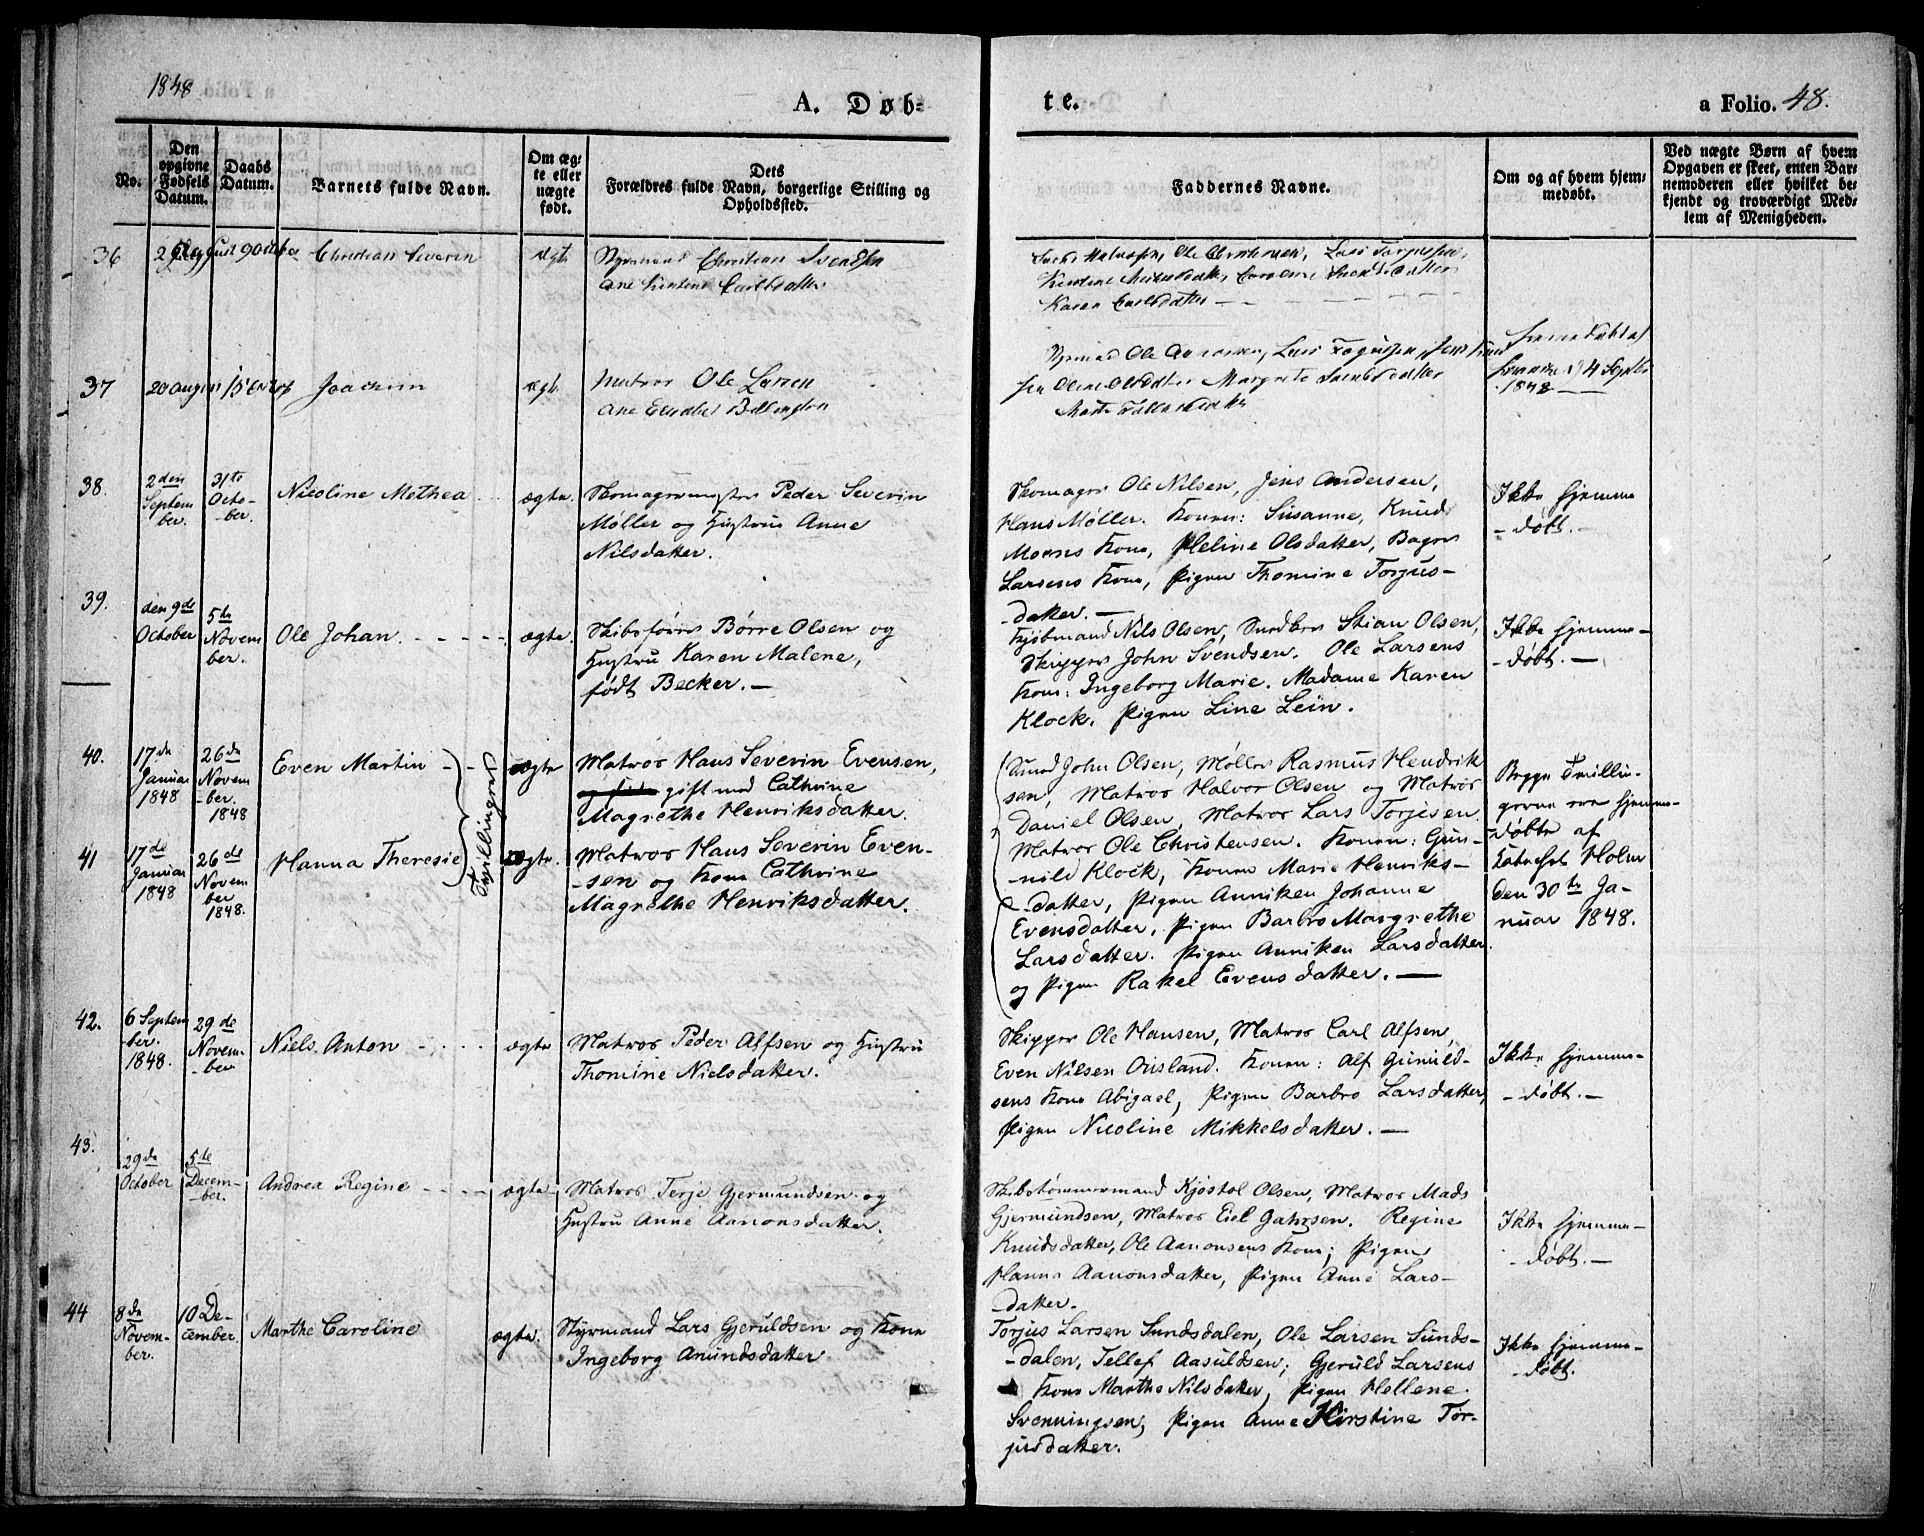 1848
A. Døb=
te.
a Folio. 48.
No.
Den opgivne Fødsels Datum.
Daabs Datum.
Barnets fulde Navn.
Om æg-
te eller
uægte
født.
Dets
Forældres fulde Navn, borgerlige Stilling og
Opholdssted.
Faddernes Navne.
Om og af hvem hjem-
medøbt.
Ved uægte Børn af hvem
Opgaven er skeet, enten Bar-
nemoderen eller hvilket be-
kjendt og troværdigt Med-
lem af Menigheden.
36
August
Christian Severin
ægte
Styrmand Christian Svendsen
Ane Kirstine Carlsdatter
Ole Christensen, Lars Torjussen,
Karen Carlsdatter
37
20 August
Joachim
ægte
Matros Ole Larsen
Ane Elisabet Bellington
Styrmand Ole Aanonsen, Lars
Margrete Svendsdatter
4 Septbr
1848
38.
2den
Septem
ber.
31te
Octo-
-ber.
Nicoline Methea
ægte.
Skomagermester Peder Severin
Møller og Hustrue Anne
Nilsdatter.
Skomager Ole Nilsen, Jens Andersen,
Hans Møller. Konen: Susanne, Knud
Moens Kone, Heline Olsdatter, Bager
Larsens Kone, Pigen Thomine Torjus-
-datter.
Ikke hjemme
-døbt.-
39.
den 9de
October
5te
Novem
ber.
Ole Johan
ægte.
Skibsfører Børre Olsen og
Hustru Karen Malene,
født Becker.-
Kjøbmand Nils Olsen, Snedker Stian Olsen,
Skipper John Svendsen. Ole Larsens
Kone: Ingeborg Marie. Madame Karen
Klock. Pigen Line Lein.
Ikke hjemme-
-døbt.-
40.
17de
Januar
1848
26de
Novem
-ber.
1848
Even Martin
Tvillinger
ægte
Matros Hans Severin Evensen,
gift med Cathrine
Magrethe Henriksdatter.
Smed John Olsen, Møller Rasmus Hendrik
sen, Matros Halvor Olsen og Matros
Daniel Olsen, Matros Lars Torjesen.
Matros Ole Christensen. Konen: Gun-
-nild Klock, Konen Marie Henriks-
-datter, Pigen Anniken Johanne
Evensdatter, Pigen Barbro Margrethe
Larsdatter. Pigen Anniken Larsdatter
og Pigen Rakel Evensdatter.
Begge Tvillin-
gerne ere hjemme-
-døbte af
Kateket Holm
den 30te Ja-
nuar 1848.
41
17de
Januar
1848
26de
Novem
ber
1848.
Hanna Theresie
ægte.
Matros Hans Severin Even-
-sen og Kone Cathrine
Magrethe Henriksdatter.
42.
6 Septem
ber.
1848.
29de
Novem-
-ber
Niels Anton
ægte
Matros Peder Alfsen og Hustru
Thomine Nielsdatter.
Skipper Ole Hansen, Matros Carl Alfsen,
Even Nilsen Ousland. Konen: Alf Gunuld-
sens Kone Abigael, Pigen Barbro Larsdatter,
Pigen Nicoline Mikkelsdatter.
Ikke hjemme-
-døbt.-
43.
29de
October
5te
Decem-
-ber.
Andrea Regine
ægte
Matros Terje Gjermundsen og
Hustru Anne Aanonsdatter.
Skibstømmermand Kjøstol Olsen, Matros Mads
Gjermundsen, Matros Eiel Gahrsen. Regine
Knudsdatter, Ole Aanonsens Kone; Pigen
Hanna Aanonsdatter, Pigen Anne Lars-
-datter.
Ikke hjemme-
-døbt.-
44
8de
Novem-
ber.
10 De-
cember.
Marthe Caroline
ægte.
Styrmand Lars Gjeruldsen og Kone
Ingeborg Anundsdatter
Torjus Larsen Sundsdalen, Ole Larsen Sunds-
-dalen, Tellef Aasuldsen; Gjeruld Larsens
Kone Marthe Nilsdatter, Pigen Hellene
Svenningsen, Pigen Anne Kirstine Tor-
jusdatter.
Ikke hjemme-
-døbt.